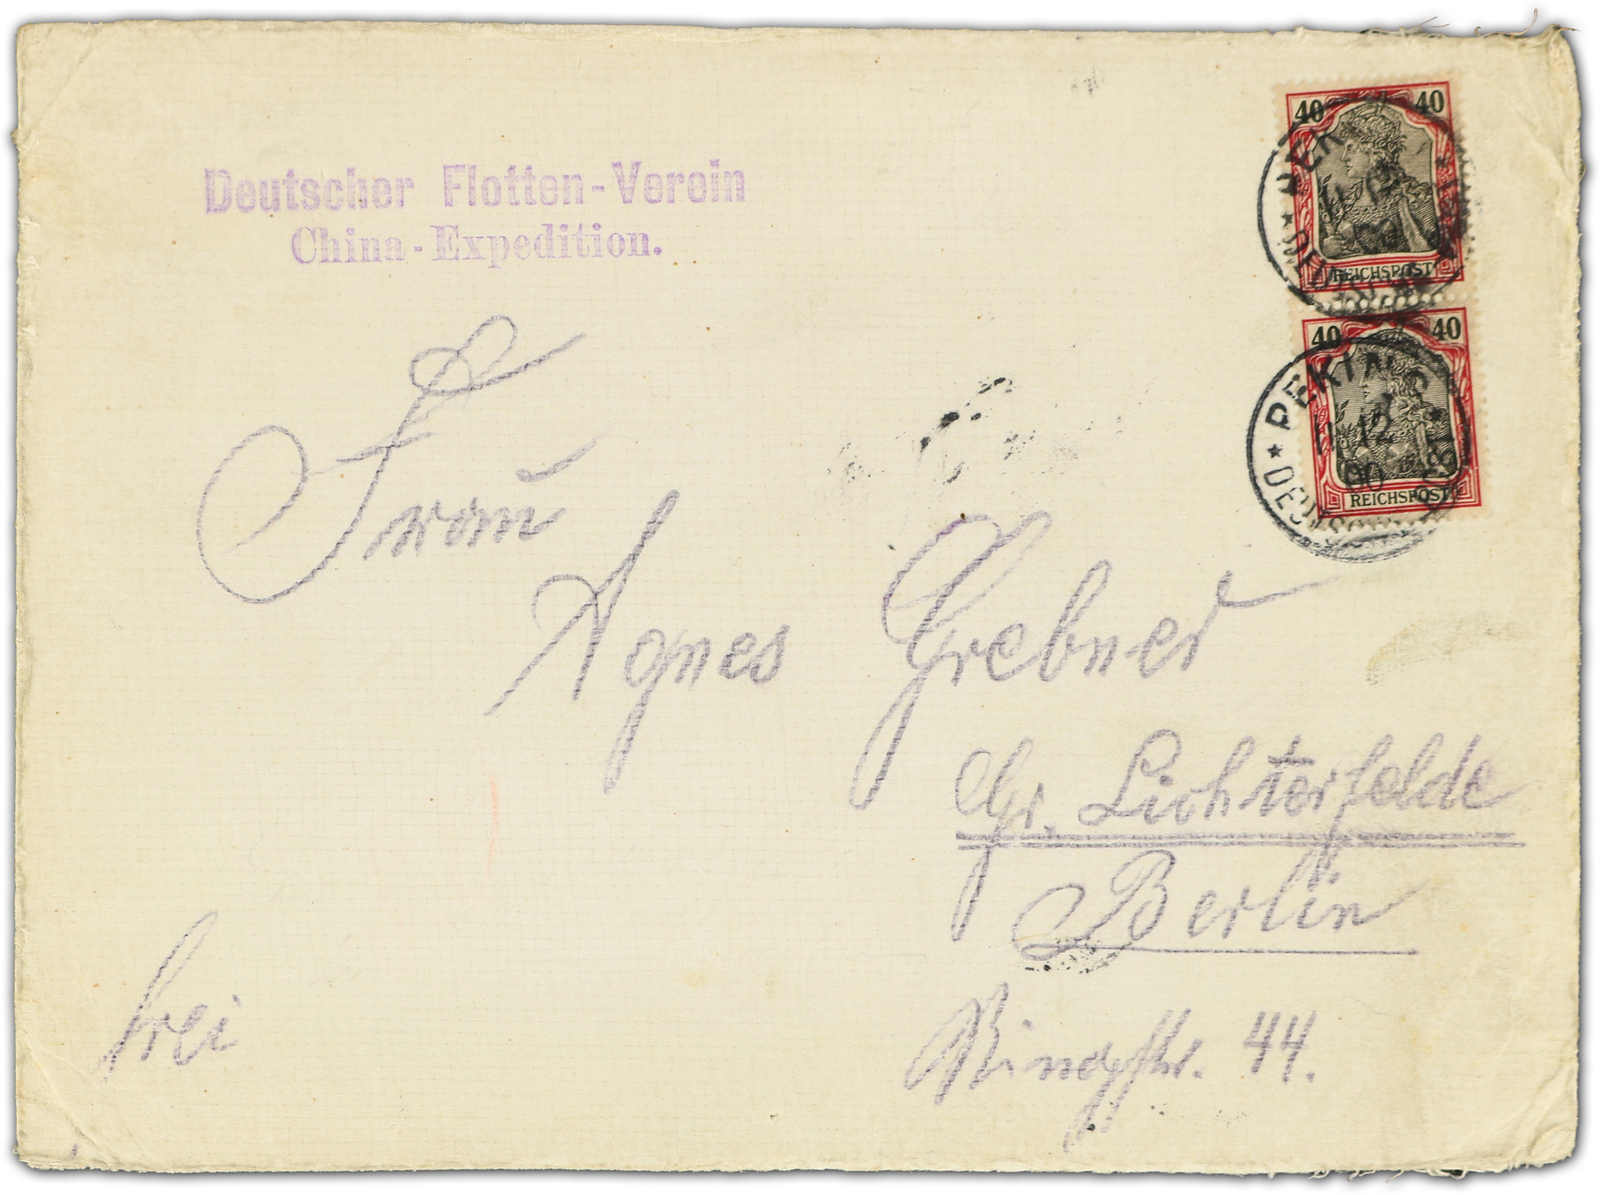 Deutscher Flotten-Verein
China-Expedition.
40 40
REICHSPOST
40 40
REICHSPOST
PEKING
11 12
00
DEUTSCHE POST
Frau
Agnes Grebner
Gr. Lichterfelde
Berlin
Ringstr. 44.
frei